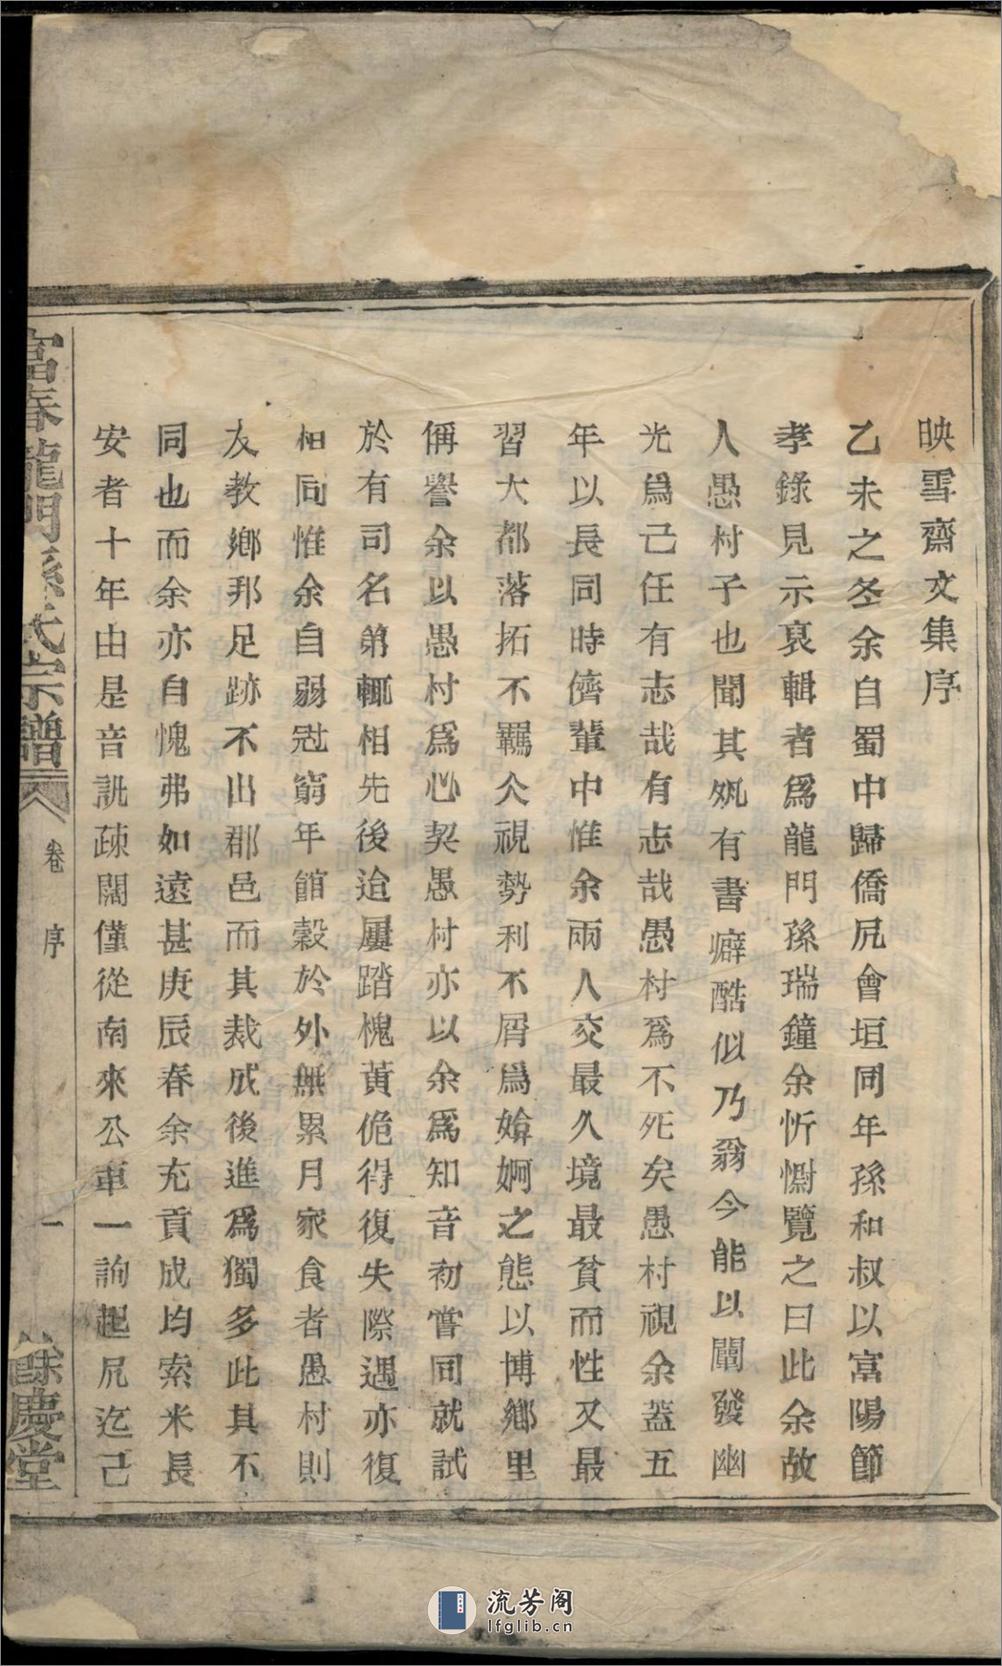 映雪齋文集序
乙未之冬余自蜀中歸僑凥會垣同年孫和叔以富陽節
孝錄見示裒輯者爲龍門孫瑞鐘余忻慰覽之曰此余故
人愚村子也聞其夙有書癖酷似乃翁今能以闡發幽
光爲己任有志哉有志哉愚村爲不死矣愚村視余蓋五
年以長同時儕輩中惟余兩人交最久境最貧而性又最
習大都落拓不羈仌視勢利不屑爲媕婀之態以博鄉里
偁譽余以愚村爲心契愚村亦以余爲知音初嘗同就試
於有司名弟輒相先後迨屢踏槐黃佹得復失際遇亦復
相同惟余自弱冠窮年館穀於外無累月家食者愚村則
友教鄉邦足跡不出郡邑而其裁成後進爲獨多此其不
同也而余亦自愧弗如遠甚庚辰春余充貢成均索米長
安者十年由是音訊疎闊僅從南來公車一詢起凥迄己
富春龍門孫氏宗譜 卷 序 一 餘慶堂
流芳阁
lfglib.cn